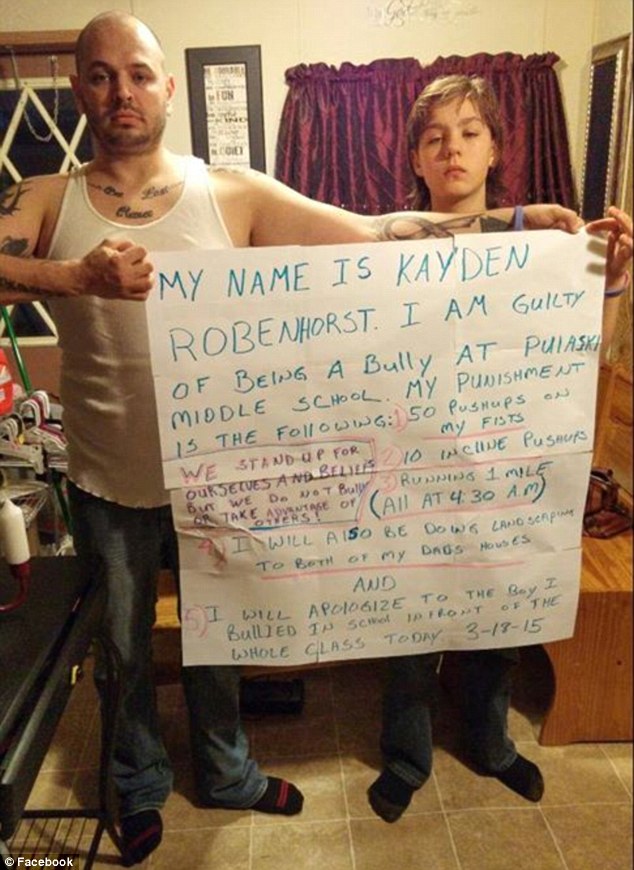 MY NAME IS KAYDEN
ROBENHORST. I AM GUILTY
OF BEING A Bully AT PUlASKI
MIDDLE SCHOOL. MY PUNISHMENT
IS THE FOllOWING: 1) 50 PUSHUPS ON
MY FISTS
WE STAND UP FOR
OURSELVES AND BELIEFS
BUT WE DO NOT Bully
OR TAKE ADVANTAGE OF
OTHERS!
2) 10 INCLINE PUSHUPS
3) RUNNING 1 MILE
(All AT 4:30 A.M)
4) I WILL AlSO BE DOING LANDSCAPING
TO BOTH OF MY DADS HOUSES
AND
5) I WILL APOlOGIZE TO THE BOY I
BUllIED IN SCHOOl INFRONT OF THE
WHOLE CLASS TODAY 3-18-15
FUN
KIND
QUIET
One Last
© Facebook